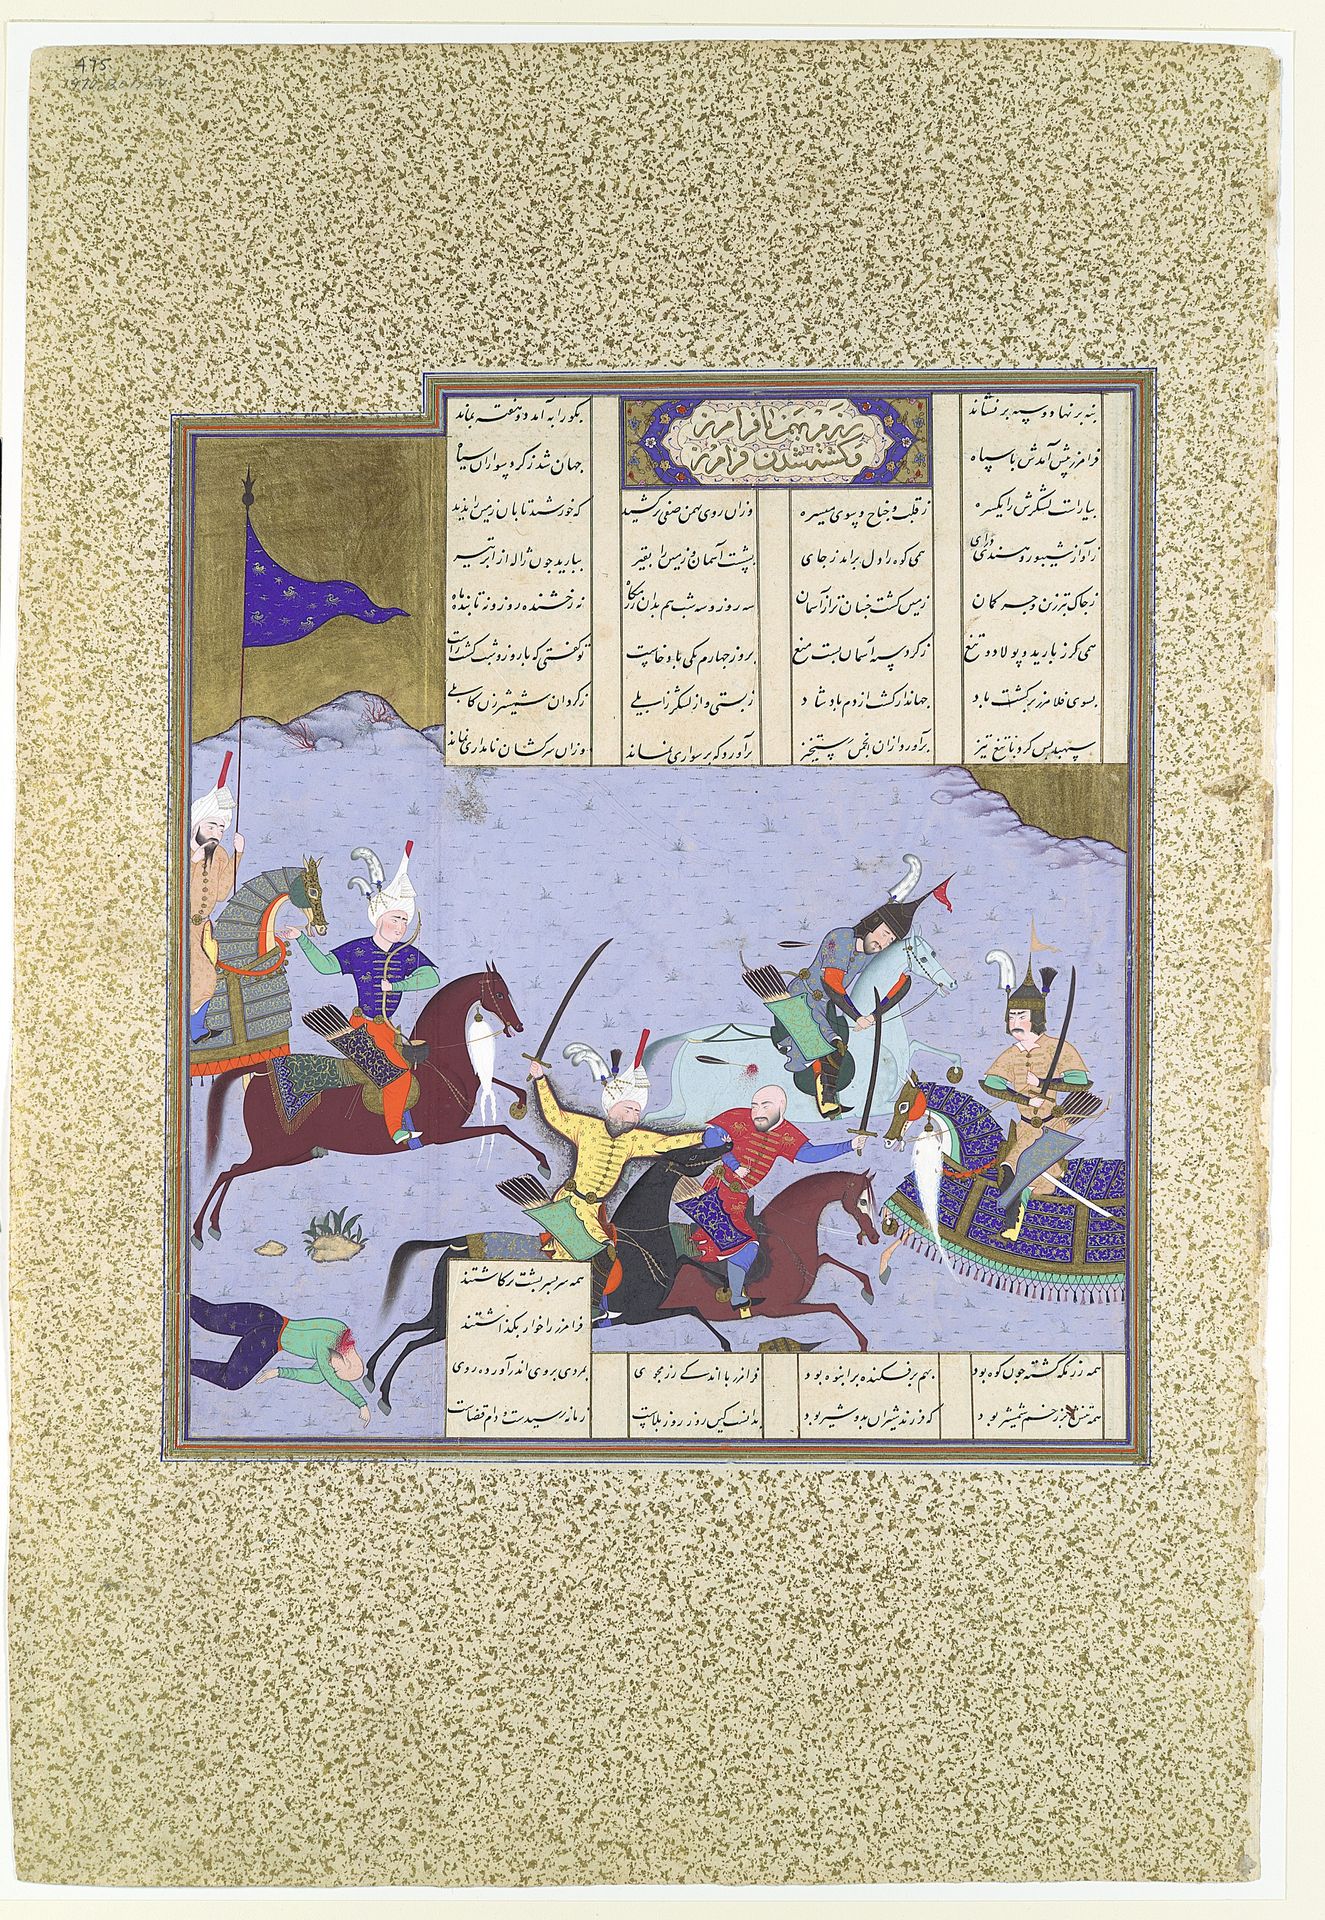 رزم بهمن با فرامرز
و کشته شدن فرامرز
بنه بر نهاد و سپه بر نشاند بگورابه آمد دو هفته بماند
فرامرز پیش آمدش با سپاه جهان شد ز گرد سواران سیاه
بیاراست لشکرش را یکسره ز قلب و جناح و سوی میسره وزان روی بهمن صفی برکشید که خورشید تابان زمین را ندید
ز آواز شیپور و هندی درای همی کوه را دل برآمد ز جای آسمان و زمین را بقیر ببارید چون ژاله از ابر تیر
ز چاک تبرزین و جر کمان زمین گشت جنبان تر از آسمان سه روز و سه شب هم بدان رزمگاه رخشنده روز و تابنده ماه
همی گرز بارید و پولاد و تیغ ز گرد سپه آسمان بست میغ بروز چهارم یکی باد خاست تو گفتی که با روز شب گشت راست
بسوی فلامرز برگشت باد جهاندار گشت از دم باد شاد ز بستی و از لشکر زابلی ز گردان شمشیرزن کابلی
سپهبد پس گرد با تیغ تیز برآورد ازان انجمن رستخیز بر سواری نماند وزان سرکشان نامداری نماند
همه سربسر پشت برگاشتند
فرامرز را خوار بگذاشتند
همه رزمگه کشته چون کوه بود بهم بر فکنده بر انبوه بود فرامرز با اندکی رزمجوی بمردی بروی اندر آورده روی
همه تنش پر زخم شمشیر بود که فرزند شیران بدو شیر بود بدانست کین روز روز بلاست زمانه رسیدست و دام قضاست